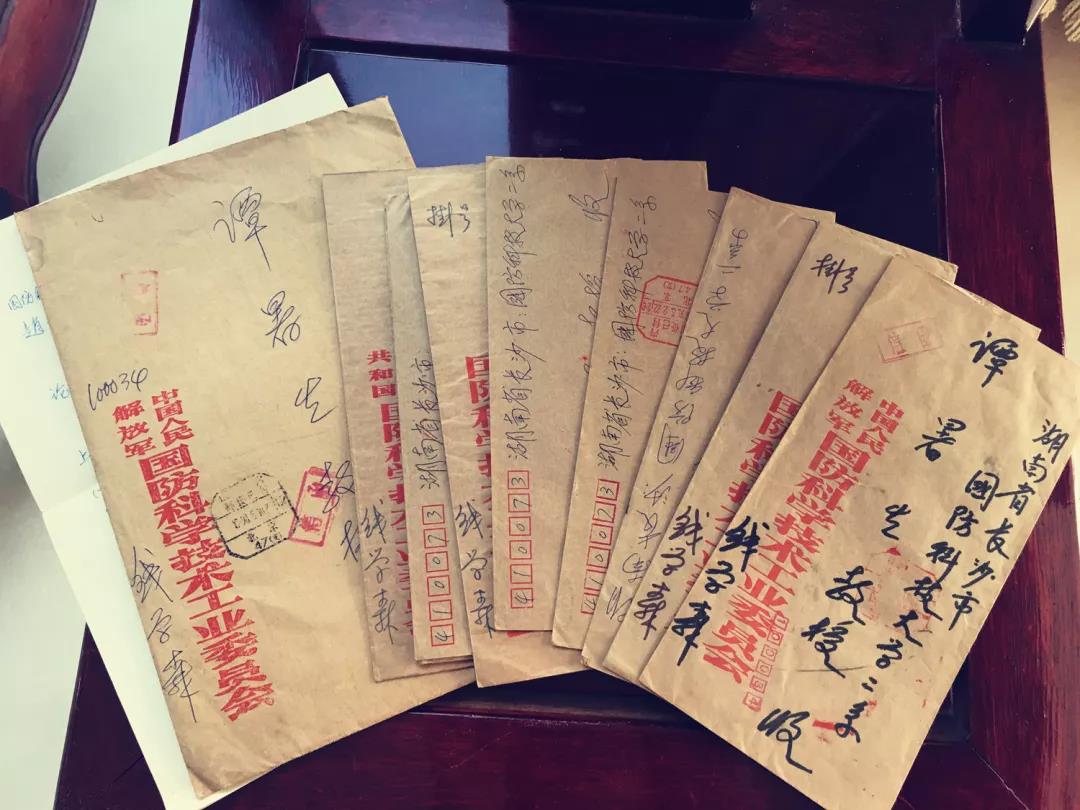 谭暑生教
100034
中国人民
解放军
国防科学技术工业委员会
钱学森
共和国
国防科学技
钱学森
湖南省长沙市
410073
挂号
国防科学技
钱学森
湖南省长沙市:国防科技大学二系
收
410073
湖南省长沙市:国防科技大学二系
410073
国防科技大学二系
挂号
国防科学技术
钱学森
钱学森
湖南省长沙市
国防科技大学二系
谭暑生教授收
中国人民
解放军
国防科学技术工业委员会
100034